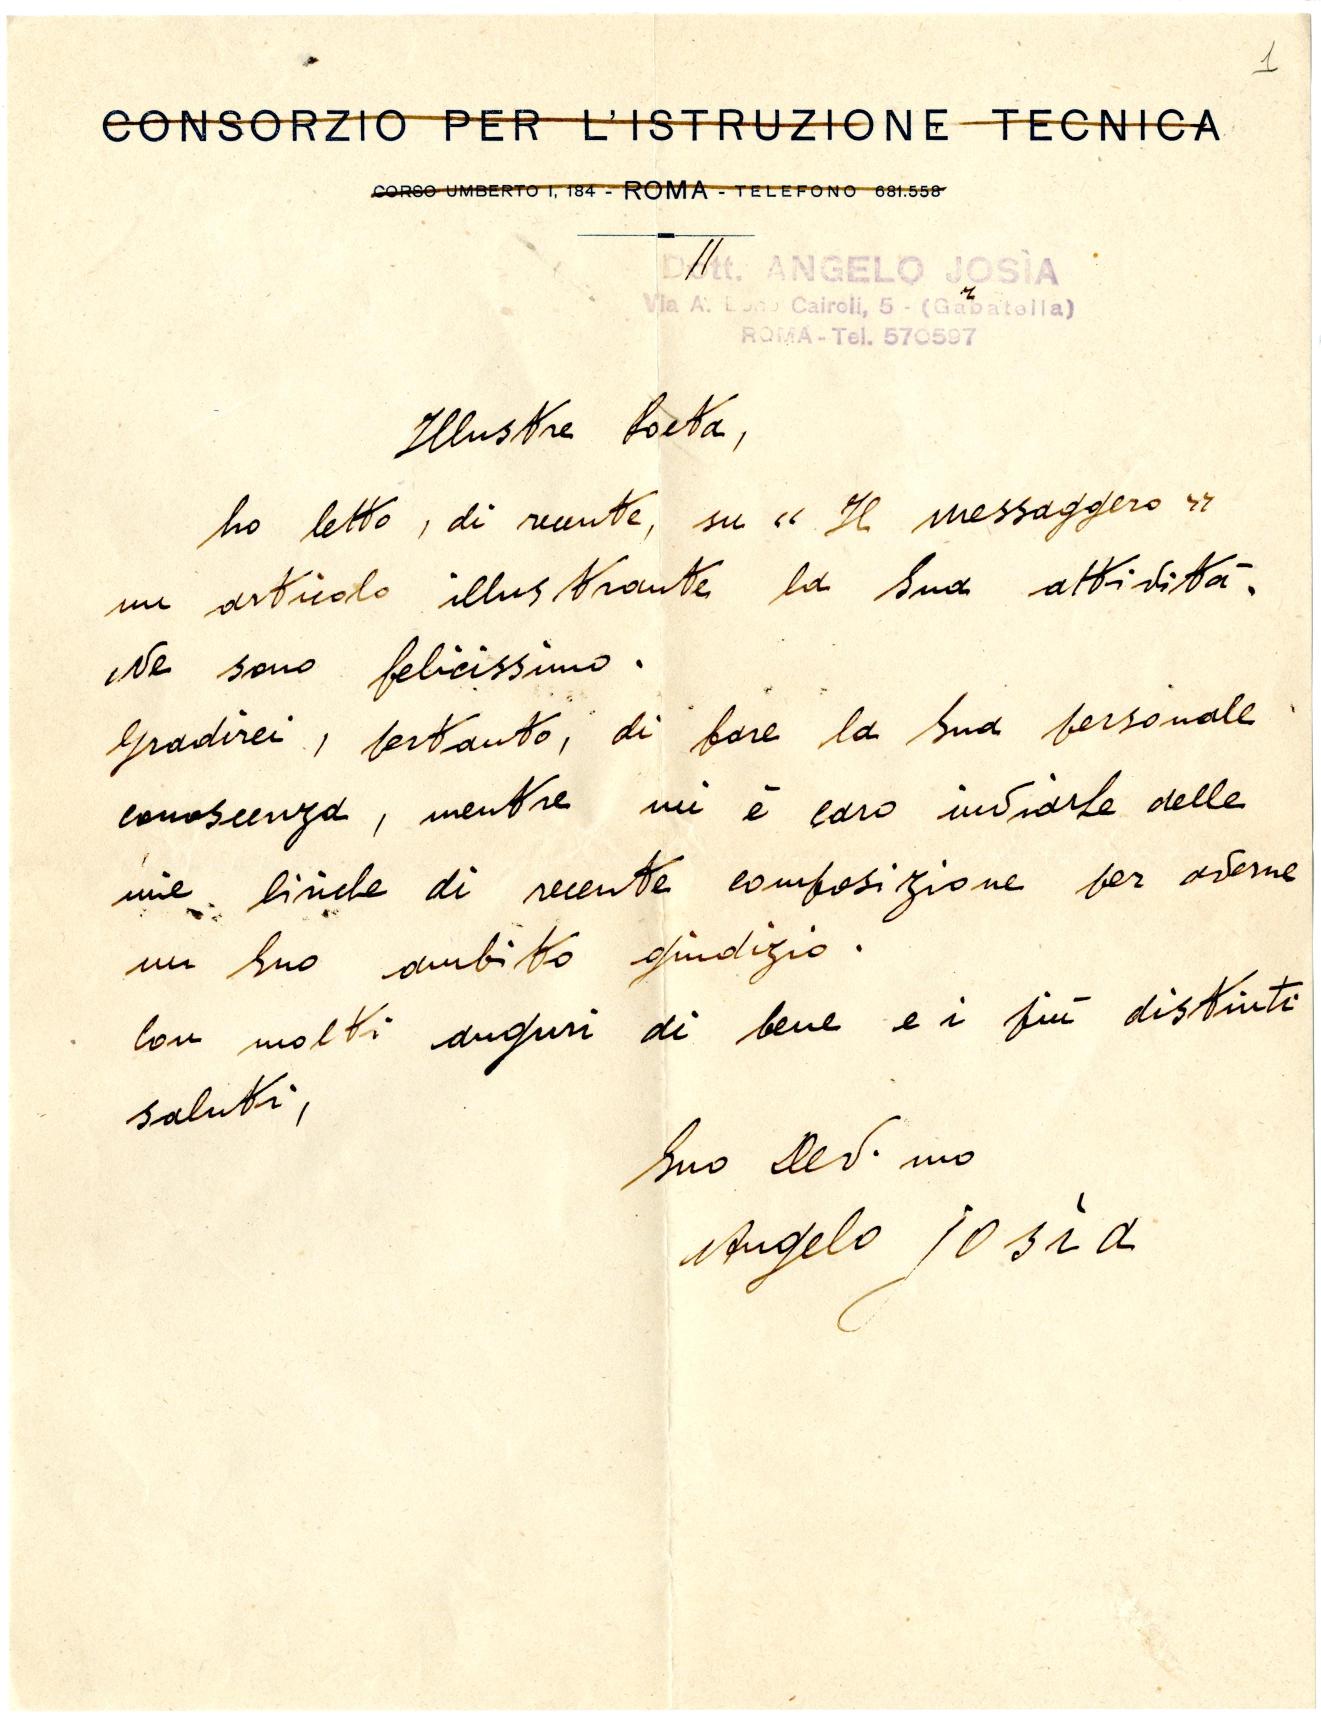 1
CONSORZIO PER L'ISTRUZIONE TECNICA
CORSO UMBERTO I, 184 - ROMA - TELEFONO 681.558
Dott. ANGELO JOSÌA
Via A. Cairoli, 5 - (Garbatella)
ROMA - Tel. 570597
Illustre Poeta,
ho letto, di recente, su “ Il Messaggero ”
un articolo illustrante la Sua attività.
Ne sono felicissimo.
Gradirei, pertanto, di fare la Sua personale
conoscenza, mentre mi è caro inviarLe delle
mie liriche di recente composizione per averne
un Suo ambito giudizio.
Con molti auguri di bene e i più distinti
saluti,
Suo Dev.mo
Angelo Josìa